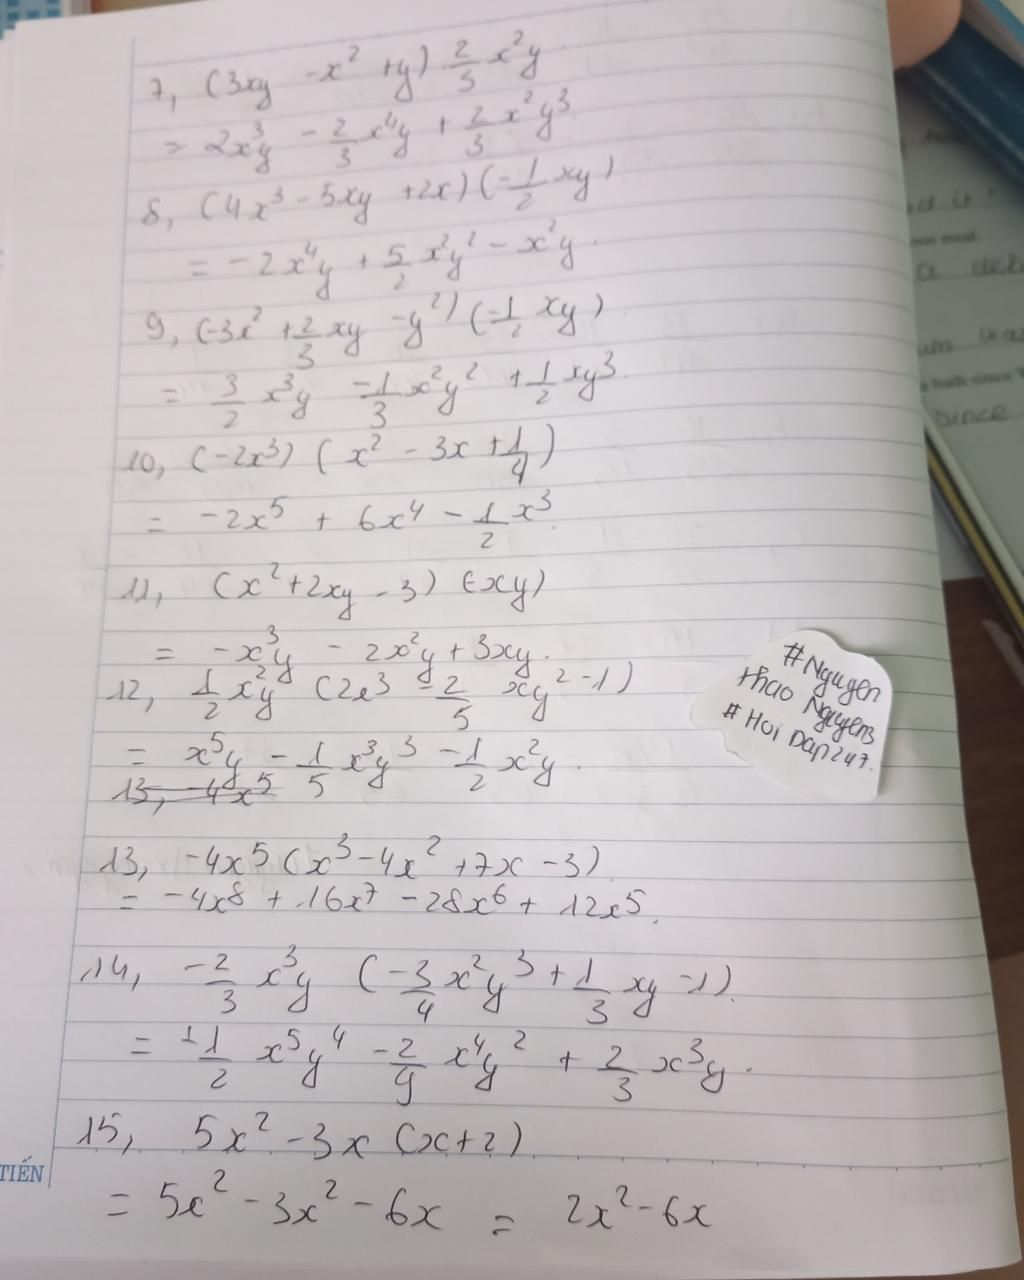 7, (3xy - x² + y) 2/3 x²y
= 2xy³ - 2/3 x⁴y + 2/3 x²y³
8, (4x³ - 5xy + 2x) (-1/2 xy)
= -2x⁴y + 5/2 x²y² - x²y.
9, (-3x² + 2/3 xy - y²) (-1/2 xy)
= 3/2 x³y - 1/3 x²y² + 1/2 xy³
10, (-2x³) (x² - 3x + 1/4)
= -2x⁵ + 6x⁴ - 1/2 x³
11, (x² + 2xy - 3) (-xy)
= -x³y - 2x²y + 3xy.
12, 1/2 x²y (2x³ - 2/5 xy² - 1)
= x⁵y - 1/5 x³y³ - 1/2 x²y.
13, -4x⁵
13, -4x⁵ (x³ - 4x² + 7x - 3)
= -4x⁸ + 16x⁷ - 28x⁶ + 12x⁵.
14, -2/3 x³y (-3/4 x²y³ + 1/3 xy - 1).
= 1/2 x⁵y⁴ - 2/9 x⁴y² + 2/3 x³y.
15, 5x² - 3x (x + 2)
= 5x² - 3x² - 6x = 2x² - 6x
#Nguyen
thao Nguyen3
#Hoi Dap247.
TIẾN
bath since
since